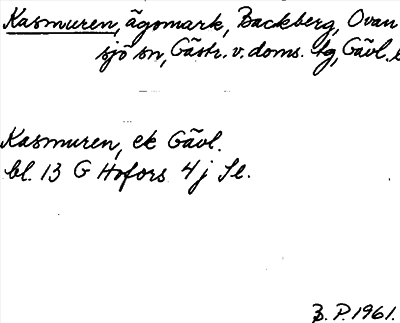 Kasmuren, ägomark, Backberg, Ovan
sjö sn, Gästr. v. doms. tg, Gävl.
Kasmuren, ek Gävl.
bl. 13 G Hofors 4 j Sl.
B. P. 1961.